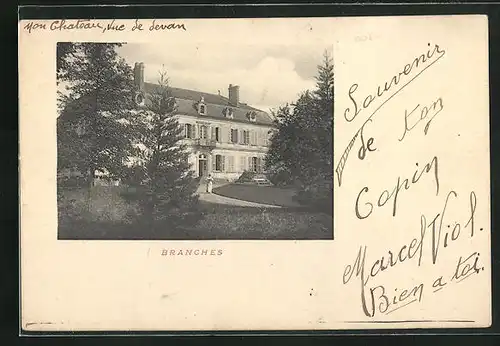 Mon Chateau, vue de devan
BRANCHES
Souvenir
de ton
Copin
Marcel Viol.
Bien a toi.